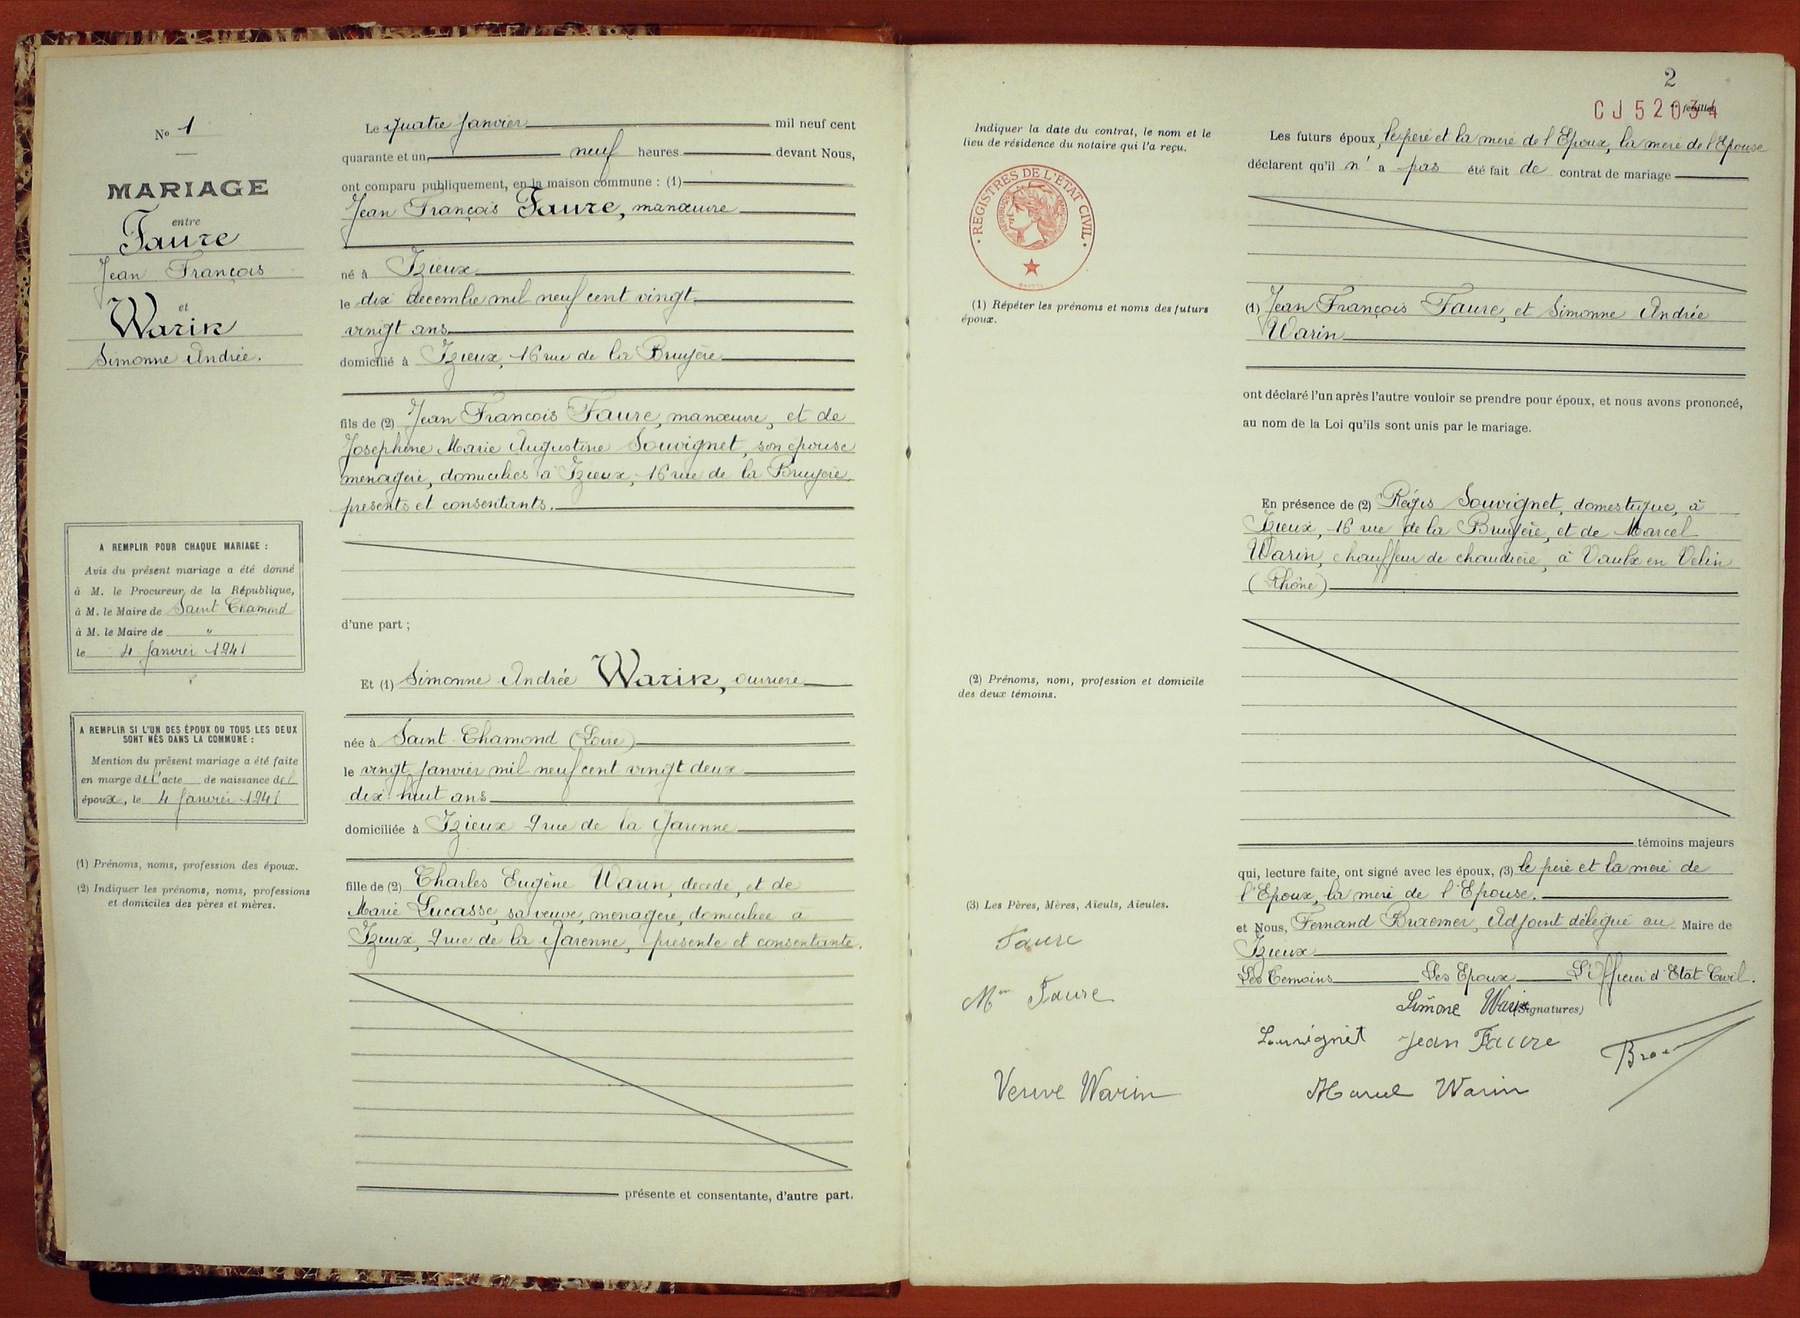 N° 1
MARIAGE
entre
Faure
Jean François
et
Warin
Simonne Andrée.
A REMPLIR POUR CHAQUE MARIAGE :
Avis du présent mariage a été donné
à M. le Procureur de la République,
à M. le Maire de Saint Chamond
à M. le Maire de "
le 4 Janvier 1941
A REMPLIR SI L'UN DES ÉPOUX OU TOUS LES DEUX
SONT NÉS DANS LA COMMUNE :
Mention du présent mariage a été faite
en marge de l'acte de naissance de l
époux, le 4 Janvier 1941
(1) Prénoms, noms, profession des époux.
(2) Indiquer les prénoms, noms, professions
et domiciles des pères et mères.
Le quatre Janvier mil neuf cent
quarante et un, neuf heures devant Nous,
ont comparu publiquement, en la maison commune : (1)
Jean François Faure, manœuvre
né à Izieux
le dix decembre mil neuf cent vingt
vingt ans
domicilié à Izieux, 16 rue de la Bruyère
fils de (2) Jean François Faure, manœuvre, et de
Joséphine Marie Augustine Souvignet, son épouse
menagère, domiciliés à Izieux, 16 rue de la Bruyère.
présents et consentants.
d'une part ;
Et (1) Simonne Andrée Warin, ouvrière
née à Saint-Chamond (Loire)
le vingt Janvier mil neuf cent vingt deux
dix-huit ans
domiciliée à Izieux 9 rue de la Garenne
fille de (2) Charles Eugène Warin, decedé, et de
Marie Lucasse, sa veuve, menagère, domiciliée a
Izieux, 9 rue de la Garenne, présente et consentante.
présente et consentante, d'autre part.
2
CJ52034
feuillet
Indiquer la date du contrat, le nom et le
lieu de résidence du notaire qui l'a reçu.
REGISTRES DE L'ÉTAT CIVIL
(1) Répéter les prénoms et noms des futurs
époux.
(2) Prénoms, nom, profession et domicile
des deux témoins.
(3) Les Pères, Mères, Aïeuls, Aïeules.
Faure
Mme Faure
Veuve Warin
Les futurs époux, le père et la mère de l'Epoux, la mère de l'Epouse
déclarent qu'il n' a pas été fait de contrat de mariage
(1) Jean François Faure, et Simonne Andrée
Warin
ont déclaré l'un après l'autre vouloir se prendre pour époux, et nous avons prononcé,
au nom de la Loi qu'ils sont unis par le mariage.
En présence de (2) Régis Souvignet, domestique, à
Izieux, 16 rue de la Bruyère, et de Marcel
Warin, chauffeur de chaudière, à Vaulx en Velin
(Rhône)
témoins majeurs
qui, lecture faite, ont signé avec les époux, (3) le père et la mère de
l'Epoux, la mère de l'Epouse.
et Nous, Fernand Adjoint délégué au Maire de
Izieux
Les Temoins Les Epoux L'Officier d'Etat Civil.
Simone Warin (Signatures)
Souvignet Jean Faure
Marcel Warin